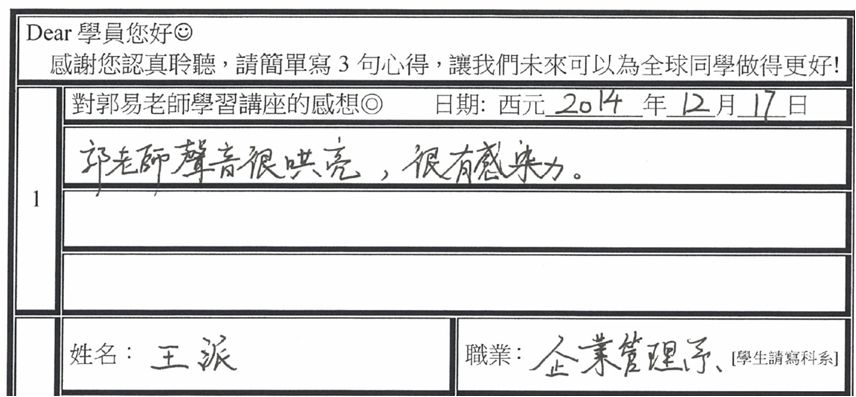 Dear 學員您好☺
感謝您認真聆聽，請簡單寫 3 句心得，讓我們未來可以為全球同學做得更好!
對郭易老師學習講座的感想◎ 日期: 西元 2014 年 12 月 17 日
郭老師聲音很哄亮，很有感染力。
1
姓名： 王派 職業： 企業管理系、 [學生請寫科系]